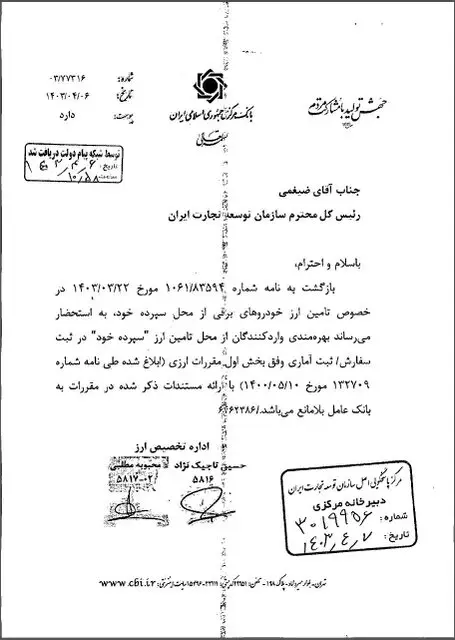 جهش تولید با مشارکت مردم
بانک مرکزی جمهوری اسلامی ایران
بسمه تعالی
شماره: ۰۳/۷۷۳۱۶
تاریخ: ۱۴۰۳/۰۴/۰۶
پیوست: دارد
توسط شبکه پیام دولت دریافت شد
تاریخ:
ساعت:
جناب آقای ضیغمی
رئیس کل محترم سازمان توسعه تجارت ایران
باسلام و احترام،
بازگشت به نامه شماره ۱۰۶۱/۸۳۵۹۴ مورخ ۱۴۰۳/۰۳/۲۲ در
خصوص تامین ارز خودروهای برقی از محل سپرده خود، به استحضار
می‌رساند بهره‌مندی واردکنندگان از محل تامین ارز "سپرده خود" در ثبت
سفارش/ ثبت آماری وفق بخش اول مقررات ارزی (ابلاغ شده طی نامه شماره
۱۳۲۷۰۹ مورخ ۱۴۰۰/۰۵/۱۰) با ارائه مستندات ذکر شده در مقررات به
بانک عامل بلامانع می‌باشد./۶۴۶۲۳۸۶
اداره تخصیص ارز
حسین تاجیک نژاد
۵۸۱۶
محبوبه مطلبی
۵۸۱۷-۰۲
سازمان توسعه تجارت ایران
دبیرخانه مرکزی
شماره: ۳۰۱۹۹۵۶
تاریخ: ۱۴۰۳/۴/۷
تهران- بلوار میرداماد- پلاک ۱۹۸
www.cbi.ir